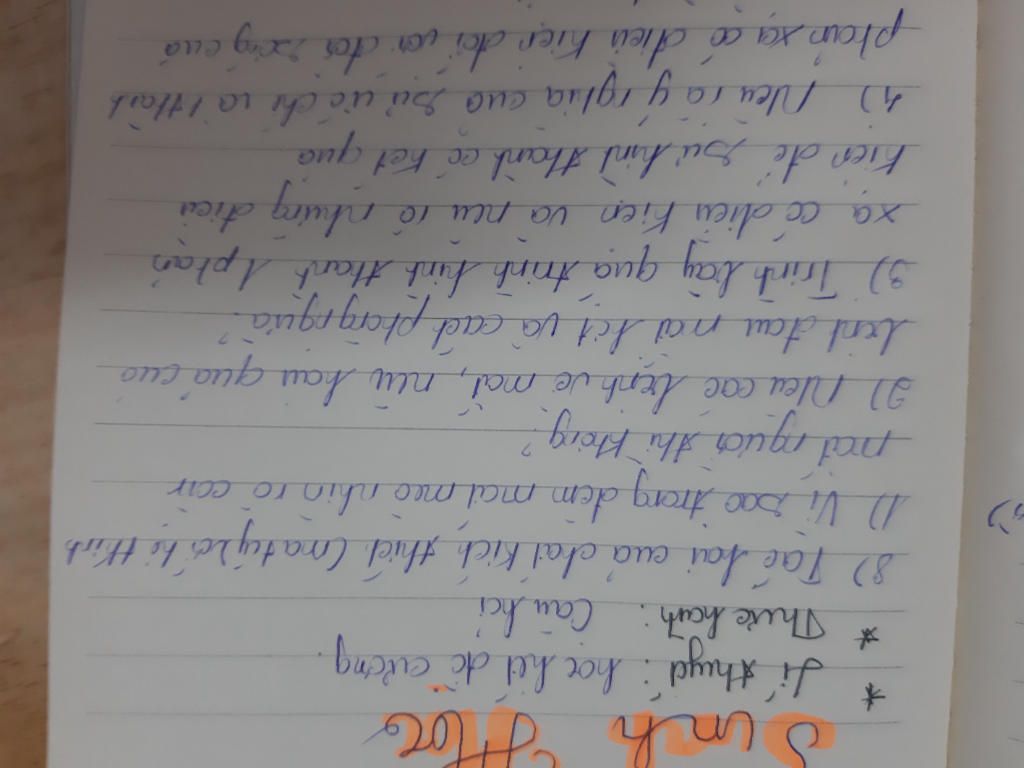 Sinh Học
* Lí thuyết: học hết đề cương.
* Thực hành: Câu hỏi
8) Tác hại của chất kích thích (ma túy) với hệ thần
1) Vì sao trong đêm mắt mèo nhìn rõ còn
mắt người thì không?
2) Nêu các bệnh về mắt, nêu hậu quả của
bệnh đau mắt hột và cách phòng ngừa.?
3) Trình bày quá trình hình thành 1 phản
xạ có điều kiện và nêu rõ những điều
kiện để sự hình thành có kết quả
4) Nêu rõ ý nghĩa của sự ức chế và thành
phản xạ có điều kiện đối với đời sống của